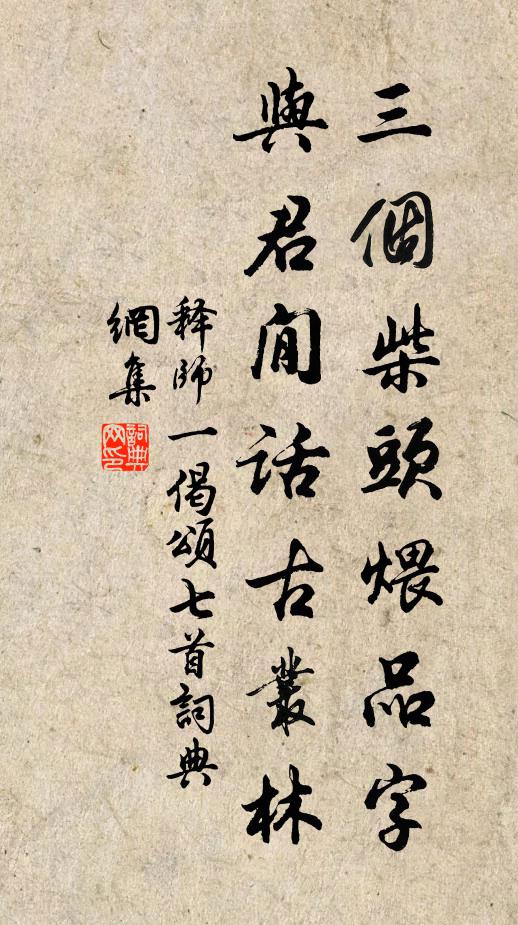 三個柴頭煨品字
與君閒話古叢林
释師一偈頌七首詞典
網集
詞典網印